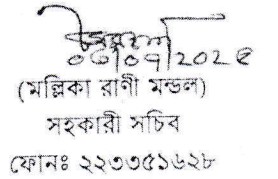 ০৬/০৭/২০২৫
(মল্লিকা রাণী মন্ডল)
সহকারী সচিব
ফোনঃ ২২৩৩৫১৬২৮